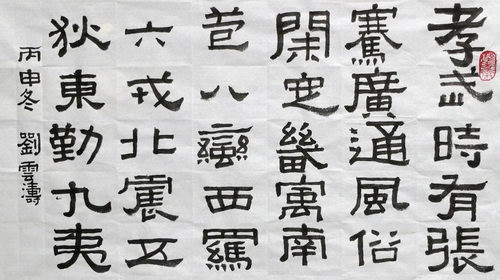 孝武時有張
騫廣通風俗
開定畿寓南
苞八蠻西羈
六戎北震五
狄東勤九夷
丙申冬 劉雲濤